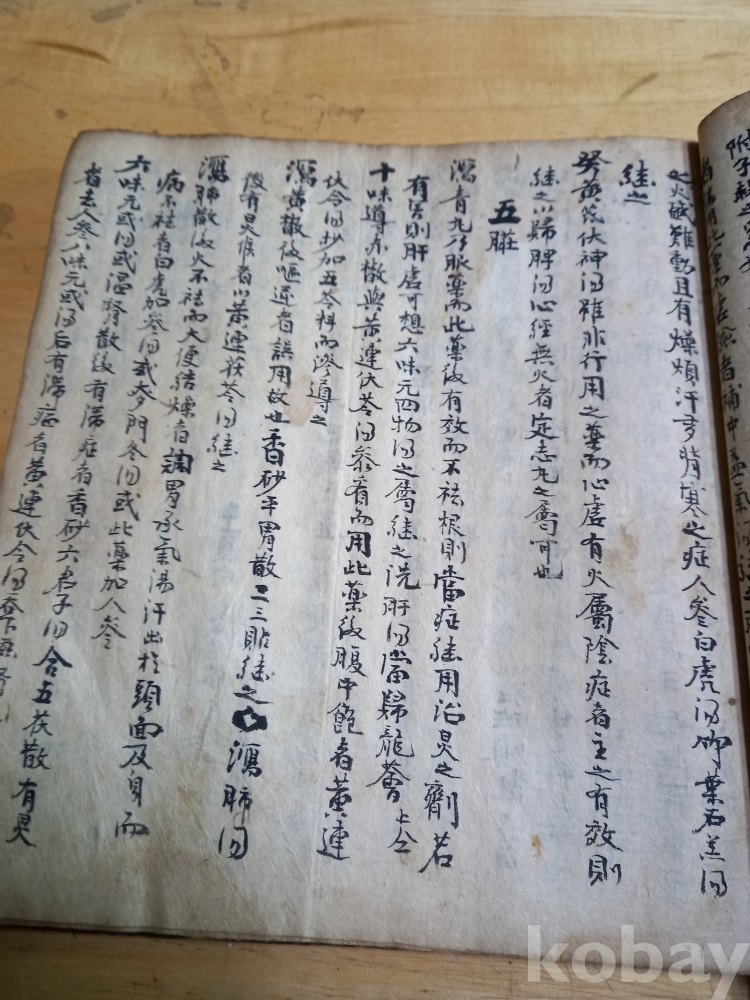 附子
之火碱難動且有燥煩汗多背寒之症人參白虎湯竹葉石羔湯
継之
茯神湯雖非行用之薬而心虚有火屬陰症者主之有效則
継之以歸脾湯心經無火者定志丸之屬可也
五臟
瀉青丸乃眼薬而此薬後有效而不祛根則當症継用治炅之劑若
有害則肝虚可想六味元四物湯之屬継之洗肝湯當歸龍薈上仝
十味導赤散與黃連伏苓湯叅看而用此薬後腹中飽者黃連
伏令湯抄加五苓料而滲導之
瀉黃散後嘔逆者誤用故也香砂平胃散二三貼継之 瀉肺湯
後有炅候者以黃連茯苓湯継之
瀉肺散後火不祛而大便結燥者調胃承氣湯汗出於頭面及身而
病不祛者白虎加參湯或麥門冬湯或此薬加人參
六味元或湯或温腎散後有滯症者香砂六君子湯合五苓散有炅
者去人參八味元或湯后有滯症者黃連伏令湯
kobay